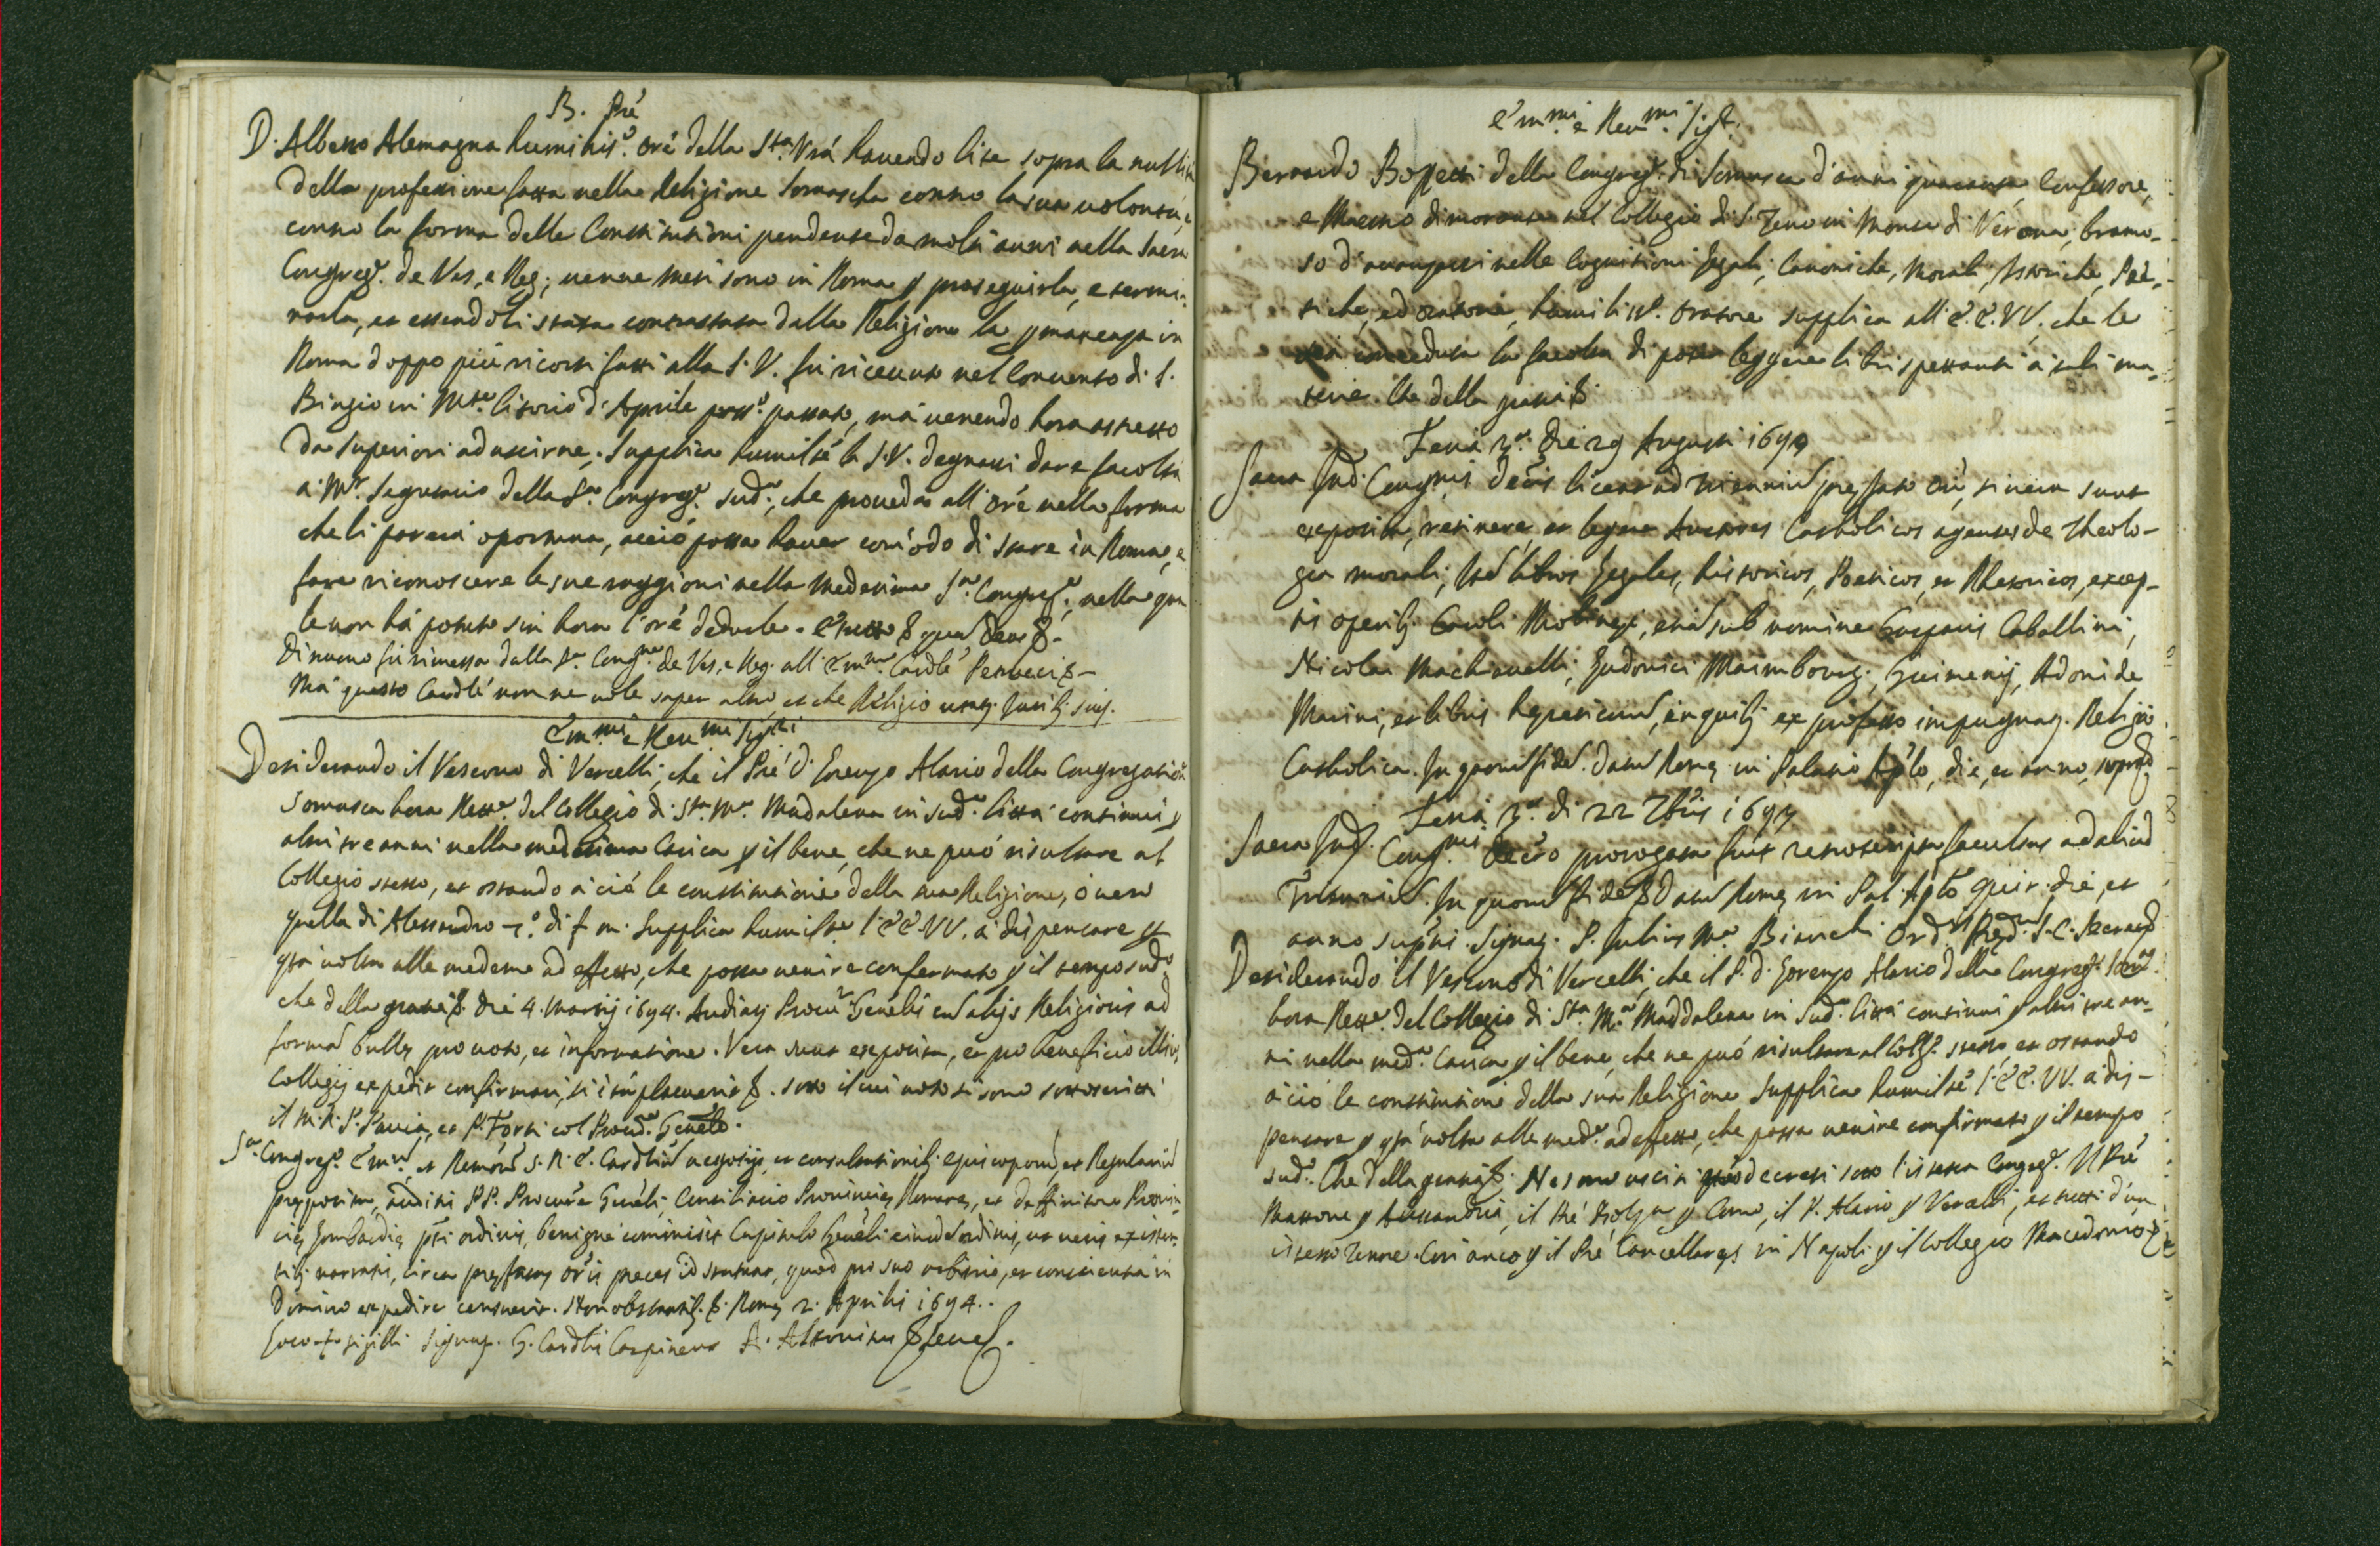 B. Pré
D. Alberto Alemagna humiliss.º oré della S.ta Vrá hauendo lite sopra la nullità
della professione fatta nella Religione Somascha contro la sua uolontà, e
contro la forma delle Constitutioni pendente da molti anni nella Sacra
Congreg.e de Ves., e Reg.; uenne mesi sono in Roma p proseguirla, e termi-
narla, et essendoli stata contrastata dalla Religione la pmanenza in
Roma doppo più ricorsi fatti alla S. V. fu riceuuto nel Conuento di S.
Biagio in Mte. Citorio d'Aprile pross.º passato, má uenendo hora astretto
da Superiori ad uscirne; Supplica humilté la S.V. degnarsi dare facoltà
a Mr. Segretario della Sa. Congreg.e sud.a, che proueda all'oré nella forma
che li parerà oportuna, acciò possa hauer com'odo di stare in Roma, e
fare riconoscere le sue raggioni nella medesima Sa. Congreg.e, nella qua
le non há potuto sin hora l'oré dedurle. E tutto &. quam Deus &.
Di nuouo fu rimessa dalla Sa. Cong.ne de Ves. e Reg. all'Emmo. Cardle
Má questo Cardlé non ne uole saper altro, et che Religio utatj Jurib; suis.
Emmi. e Reumi Sigri
Desiderando il Vescouo di Vercelli, che il Pré D. Lorenzo Alario della Congregation
Somasca hora Rettre. del Collegio di Sta. Ma. Madalena in sud.a Città continui p
altri tre anni nella medesima Carica p il bene, che ne può risultare al
Collegio stesso, et ostando a ció le constitutioni della sua Religione, ó uero
quella di Alessandro 7.º di f. m. Supplica humilte. l'EE.VV. a dispensare p
qsta uolta alle medeme ad effetto, che possa uenire confermato p il tempo sud.º
che della gratia &. Die 4. Martij 1694. Audiatj Procur. Genelis cum alijs Religiosis ad
formam bullę pro uoto, et informatione. Vera sunt exposita, et pro beneficio illius
Collegij expedit confirmari, si ita placuerit &. sotto il cui uoto si sono sottoscritti
il M. R. P. Pauia, et P. Forti col Procu.e Genele.
Sa. Congreg.º Emor. et Remor. S. R. E. Cardlium negotijs, et consultationib; Episcoporum, et Regularium
pręposita, auditis PP. Procure Geneli, Consiliario Prouincię Romanę, et Diffinitore Prouin
cię Lombardię pti ordinis, benigne commisit Capitulo Geneli eiusdem ordinis, ut ueris existen
tib; narratis, circa pręfatas oris preces id statuat, quod pro suo arbitrio, et conscientia in
Domino expedire censuerit. Non obstantib. &. Romę 2. Aprilis 1694.
Loco + sigilli Signatj. G. Cardlis Carpineus A. Altouitus Secres.
Emmi. e Reumi. Sigri.
Bernardo Bopetti della Congreg.e di Somasca d'anni quaranta, Confessore,
e Maestro dimorante nel Collegio di S. Zeno in Monte di Verona, bramo-
so d'auanzarsi nelle Cognitioni Legali, Canoniche, Morali, Istoriche, Poe-
tiche, ed oratorie, humiliss.º oratore supplica all'E.E.VV. che le
sia conceduta la facoltà di poter leggere libri spettanti a tali ma-
terie. Che della gratia &
Feria 3.a die 29 Augusti 1694
Sacra Ind. Congnis Decis liceat ad triennium pręfato ori, si uera sunt
exposita, retinere, et legere Auctores Catholicos agentes de Theolo-
gia morali; Item libros Legales, historicos, Poeticos, et Rhetoricos, excep-
tis operib; Caroli Molinęi, etiá sub nomine Gasparis Caballini,
Nicolai Machiauelli; Ludouici Maimbourg; Guimenij, Adonide
Marini, et libris hęreticorum, in quib; ex professo impugnatj. Religio
Catholica. In quorum fidem. Datum Romę in Palatio Aplo, die, et anno, suprad.
Feria 3.a di 22 7bris 1697
Sacra Ind. Congnis Decto prorogata fuit retroscripta facultas ad aliud
Triennium. In quorum fidem & Datum Romę in Pal. Aplo Quir. die, et
anno supni. Signatj. P. Julius Ma. Bianchi Ord. Pręd. S. C. Secres.
Desiderando il Vescouo di Vercelli, che il P. D. Lorenzo Alario della Congreg.e Som.a
hora Rettre. del Collegio di Sta. Ma. Maddalena in sud.a Città continui p altri tre an-
ni nella med.a Carica p il bene, che ne può risultare al Coll.º stesso, et ostando
a ció le constitutioni della sua Religione Supplica humilté l'EE. VV. a dis-
pensare p qsta uolta alle med.e ad effetto, che possa uenire confirmato p il tempo
sud.º Che della gratia &. Ne sono usciti decreti sotto l'istessa Congreg.e. Il Pré
Mattone p Alessandria, il Pré p Como, il P. Alario p Vercelli, et tutti d'un
istesso tenore. Cosi anco p il Pré Cancellares in Napoli p il Collegio Macedonio &